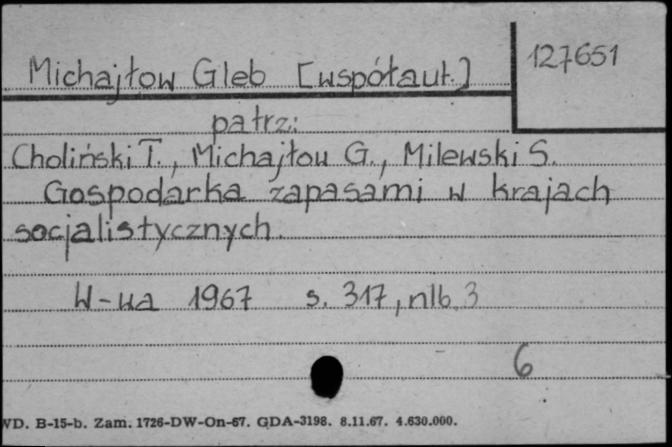 Michajłow Gleb [współaut.]
127651
patrz:
Choliński T., Michajłow G., Milewski S.
Gospodarka zapasami w krajach
socjalistycznych.
W-wa 1967 s. 317, nlb. 3
6
WD. B-15-b. Zam. 1726-DW-On-67. GDA-3198. 8.11.67. 4.630.000.